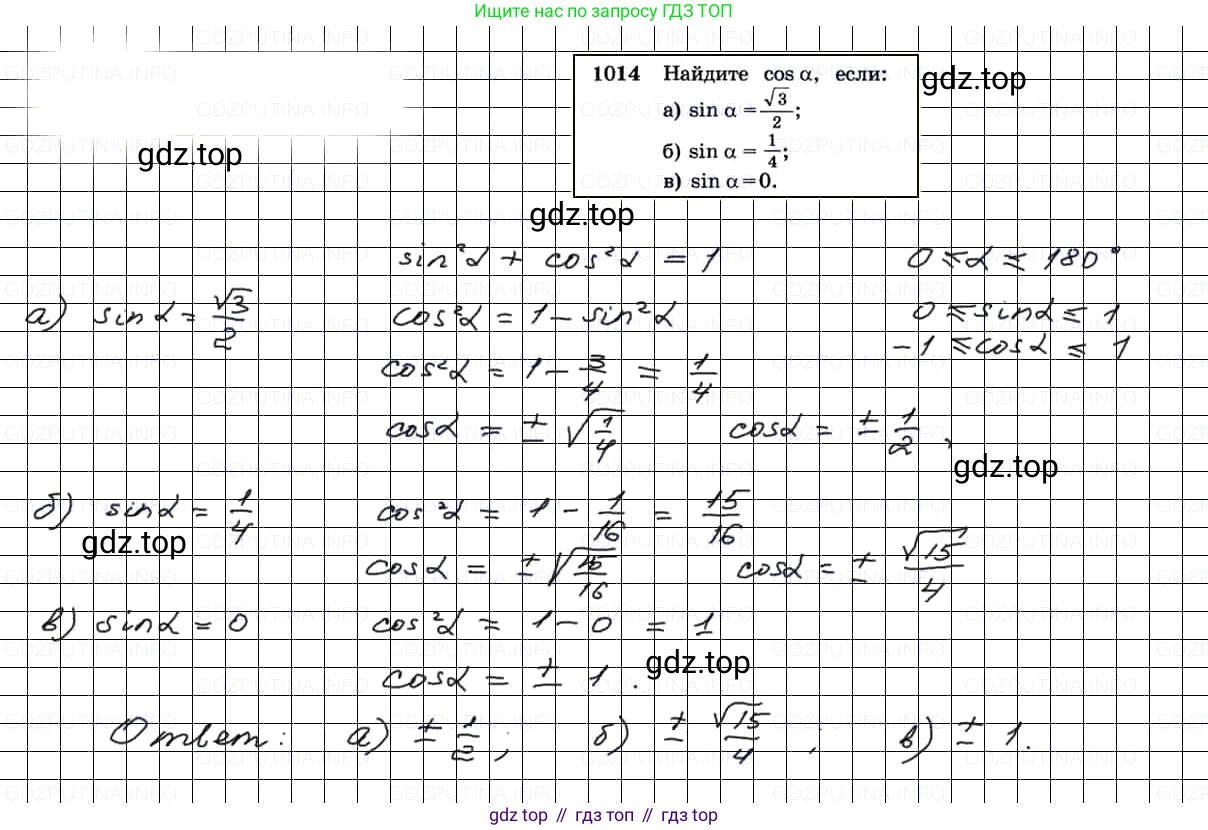 Ищите нас по запросу ГДЗ ТОП
GDZPUTINA.INFO
1014 Найдите cos α, если:
а) sin α = √3/2;
б) sin α = 1/4;
в) sin α = 0.
gdz.top
gdz.top
gdz.top
sin²α + cos²α = 1
0 ≤ α ≤ 180°
а) sin α = √3/2
cos²α = 1 − sin²α
0 ≤ sin α ≤ 1
−1 ≤ cos α ≤ 1
cos²α = 1 − 3/4 = 1/4
cos α = ± √(1/4)
cos α = ± 1/2,
gdz.top
б) sin α = 1/4
cos²α = 1 − 1/16 = 15/16
gdz.top
cos α = ± √(15/16)
cos α = ± √15/4
в) sin α = 0
cos²α = 1 − 0 = 1
gdz.top
cos α = ± 1.
Ответ: а) ± 1/2; б) ± √15/4; в) ± 1.
gdz top // гдз топ // gdz top